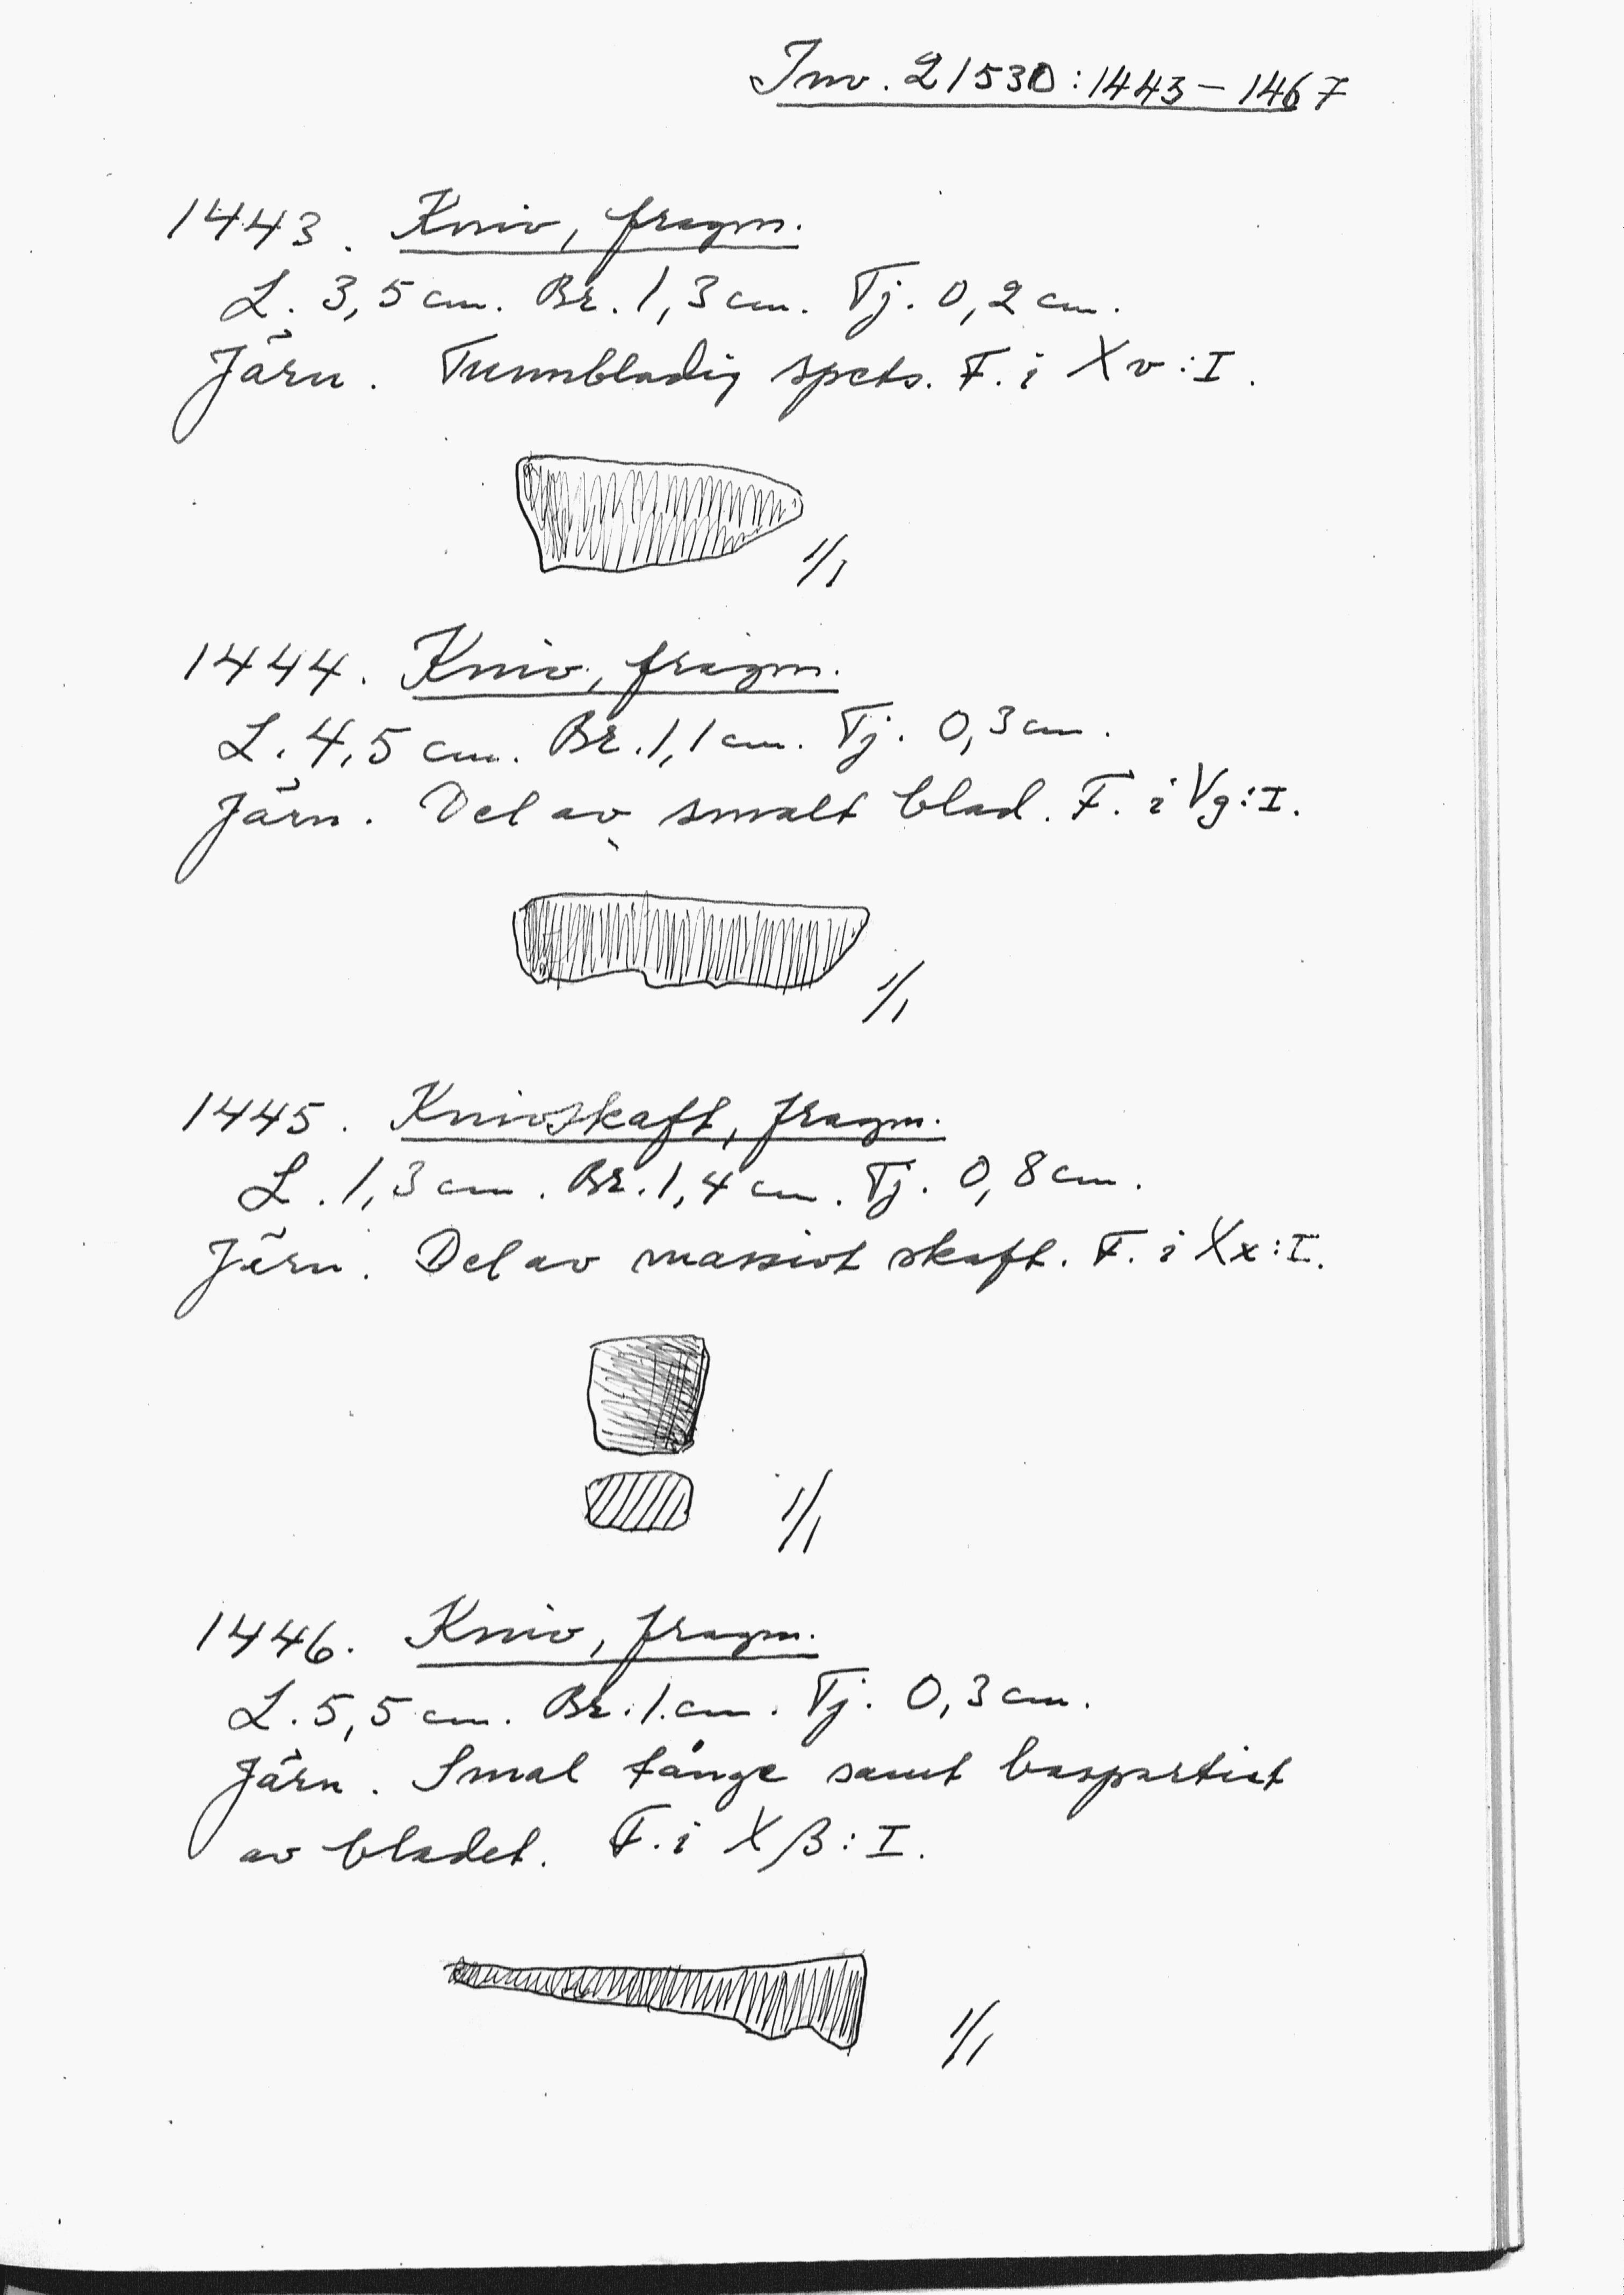 Inv. 21530:1443-1467
1443. Kniv, fragm.
L. 3,5 cm. Br. 1,3 cm. Tj. 0,2 cm.
Järn. Tunnbladig spets. F. i Xv:I.
1/1
1444. Kniv, fragm.
L. 4,5 cm. Br. 1,1 cm. Tj. 0,3 cm.
Järn. Del av smalt blad. F. i Vg:I.
1/1
1445. Knivskaft, fragm.
L. 1,3 cm. Br. 1,4 cm. Tj. 0,8 cm.
Järn. Del av massivt skaft. F. i Xx:I.
1/1
1446. Kniv, fragm.
L. 5,5 cm. Br. 1 cm. Tj. 0,3 cm.
Järn. Smal tånge samt baspartiet
av bladet. F. i Xβ:I.
1/1